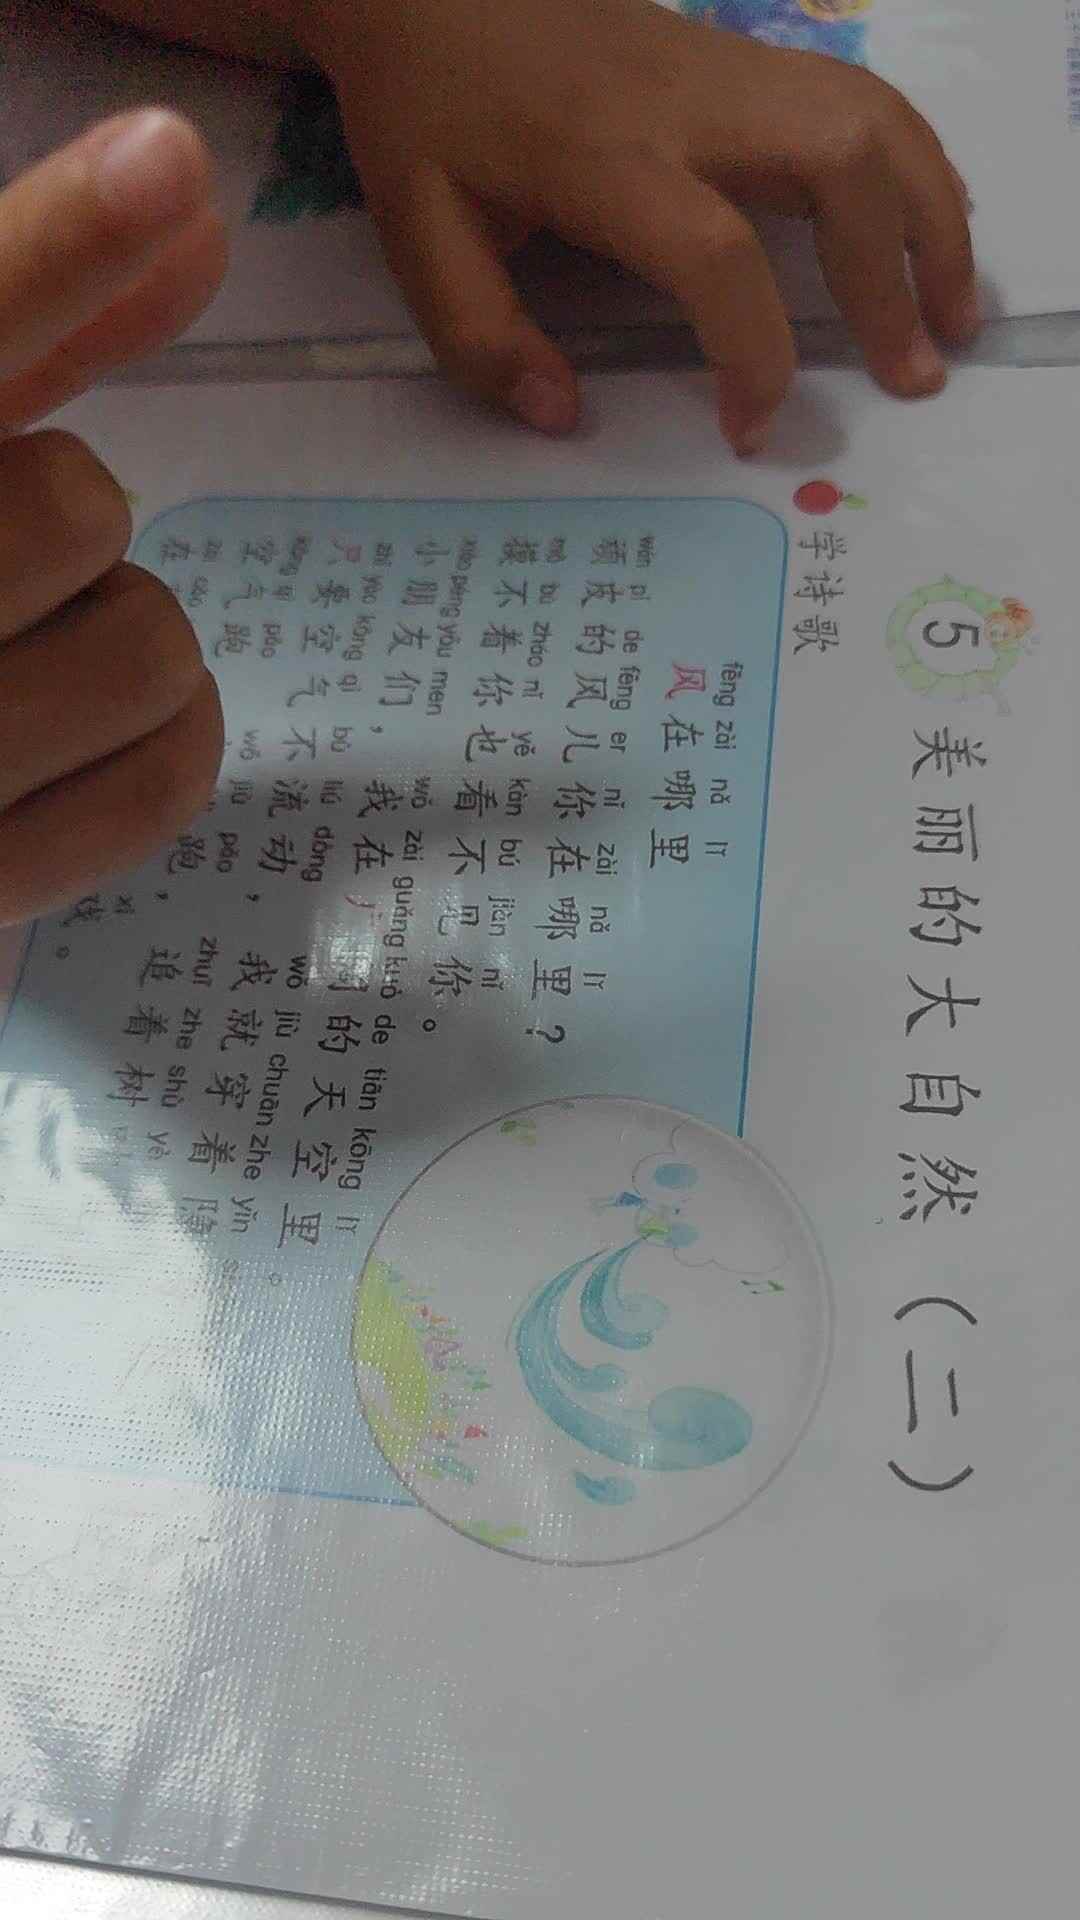 5 美丽的大自然（二）
学诗歌
fēng zài nǎ lǐ
风在哪里
wán pí de fēng er nǐ zài nǎ lǐ
顽皮的风儿你在哪里？
mō bu zháo nǐ yě kàn bú jiàn nǐ
摸不着你也看不见你。
xiǎo péng yǒu men wǒ zài guǎng kuò de tiān kōng lǐ
小朋友们，我在广阔的天空里。
zhǐ yào kōng qì bù liú dòng wǒ jiù chuān zhe yǐn
只要空气不流动，我就穿着隐
kōng qì pǎo wǒ jiù pǎo zhuī zhe shù yè
空气跑 跑，追着树
zài cǎo xì
在 戏。